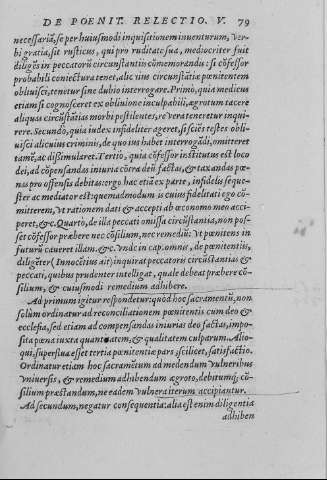 DE POENIT. RELECTIO. V. 79
necessariã, se per huiusmodi inquisitionem inuenturum, Ver-
bi gratia, sit rusticus, qui pro ruditate sua, mediocriter fuit
diligẽs in peccatorũ circunstantiis cõmemorandis: si cõfessor
probabili coniectura tenet, alicuius circunstãtiæ pœnitentem
obliuisci, tenetur sine dubio interrogare. Primò, quia medicus
etiam si cognosceret ex obliuione inculpabili, ægrotum tacere
aliquas circunstãtias morbi pestilentes, reuera teneretur inqui-
rere. Secundò, quia iudex infideliter ageret, si sciẽs testes obli-
uisci alicuius criminis, de quo ius habet interrogãdi, omitteret
tamẽ, ac dissimularet. Tertio, quia cõfessor institutus est loco
dei, ad cõpensandas iniurias cõtra deũ factas, & taxandas pœ-
nas pro offensis debitas: ergo hac etiã ex parte, infidelis seque-
ster ac mediator est: quemadmodum is cuius fidelitati ego cõ-
mitterem, Vt rationem dati & accepti ab œconomo meo acci-
peret, &c. Quarto, de illa peccati omissa circunstãtia, non pos-
set cõfessor præbere nec cõsilium, nec remediũ: Vt pœnitens in
futurũ caueret illam. &c. Vnde in cap. omnis, de pœnitentiis,
diligẽter (Innocẽtius ait) inquirat peccatoris circũstãtias &
peccati, quibus prudenter intelligat, quale debeat præbere cõ-
silium, & cuiusmodi remedium adhibere.
Ad primum igitur respondetur: quòd hoc sacramentũ, non
solùm ordinatur ad reconciliationem pœnitentis cum deo &
ecclesia, sed etiam ad compensandas iniurias deo factas, impo-
sita pœna iuxta quantitatem, & qualitatem culparum. Alio-
qui, superflua esset tertia pœnitentiæ pars, scilicet, satisfactio.
Ordinatur etiam hoc sacramẽtum ad medendum Vulneribus
Vniuersis, & remedium adhibendum ægroto, debitumq́; cõ-
silium præstandum, ne eadem Vulnera iterum accipiantur.
Ad secundum, negatur consequentia: alia est enim diligentia
adhiben